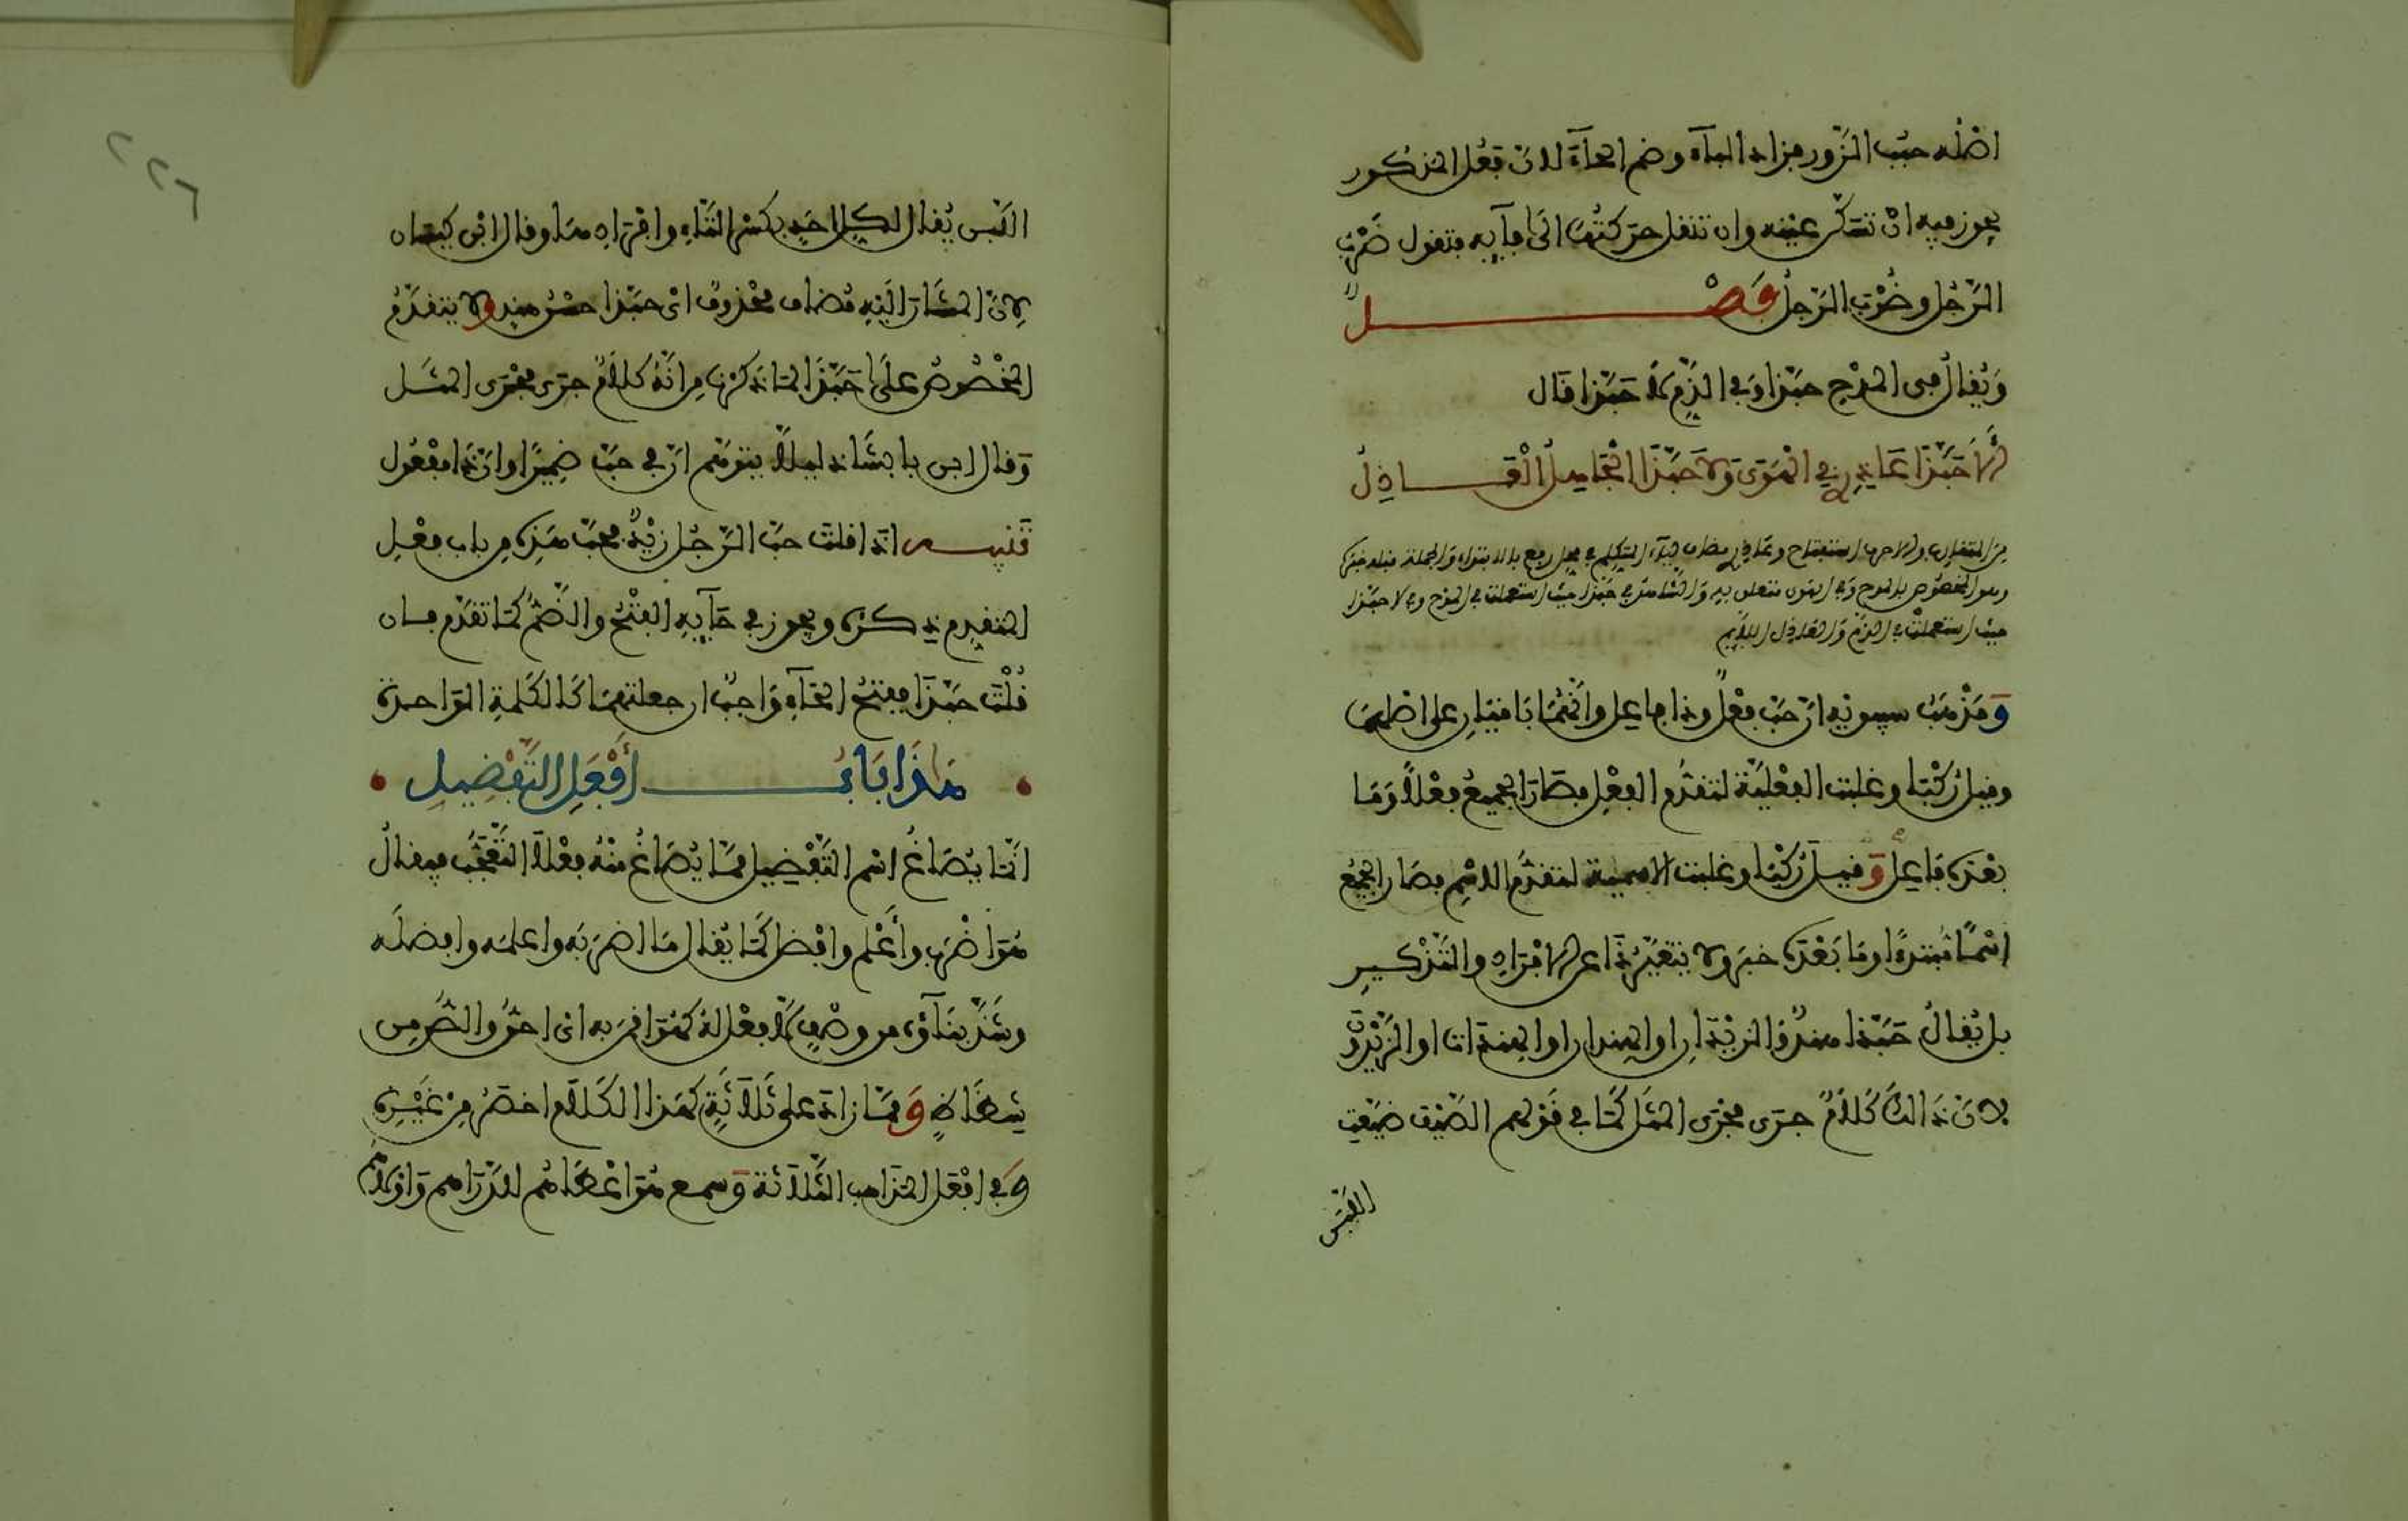 اصله حبب الزور فزاد الباء وضم الحاء لان فعل المذكور
يجوز فيه ان تسكن عينه وان تنقل حركتها الى فائه فتقول ضَرْب
الرَّجُل وضُرْب الرَّجلُ فَصْـــــل
وَيُقالُ في المدْحِ حبّذا وَفي الذّمِ لا حَبّذا قال
أَلا حَبَّذَا عَاذِرِي في الهَوَى وَلاَ حَبَّذَا الجَاهِلُ الْعَـــاذِلُ
من المتقارب والا حرف استفتاح وعاذري مضاف لياء المتكلم في محل رفع بالابتداء والجملة قبله خبره
وهو المخصوص بالمدح وفي الهوى متعلق به وَالشّاهد في حبّذا حيث استعملت في المدح وفي لا حبّذا
حيث استعملتْ في الذّم وَالعاذل اللايم
وَمَذْهَبُ سيبويه ان حَبّ فعْل وذا فاعل وانّهُمَا باقيان على اصلهما
وقيل رُكّبَا وغلبت الفعْليّة لتقدُّم الفعْل فصَارَ الجميعُ فعْلاً وَمَا
بعْده فاعل وَقيل رُكّبا وغلبت الاسمية لتقدُّم الاسْم فصار الجميعُ
اسْمًا مُبتدءًا ومَا بَعْده خبره ولا يتغيّرُ ذَا عن الافْرَادِ والتّذْكير
بل يُقالُ حَبّذا هندٌ والزيْدَانِ او الهندان او الهندات او الزّيْدُونَ
لانّ ذَالك كَلاَمٌ جرَى مجْرَى المثَل كَمَا في قَوْلهم الصّيْفَ ضيّعْتِ
اللّبَن
اللّبَن يُقال لكل احَدٍ بكسْر التّاءِ وافْرَادِهَا وقال ابْن كيسان
لانّ المشَارَ اليْهِ مُضاف محْذوفٌ اىْ حبّذا حسْن هند ولا يتقدّمُ
المخْصُوصُ علَى حَبّذَا لمَا ذكرْنا من انّهُ كَلاَمٌ جرَى مجْرَى المثَل
وقال ابن بابشاذ ليلاّ يتوهّم انّ في حبّ ضميرًا وانّ ذا مفْعُول
تَنْبيـــه اذا قلت حبّ الرّجُل زيْدٌ فحبّ هَذِه من باب فعْل
المتقدِم ذكره ويجوز في حَايِهِ الفتْحُ والضّمُّ كمَا تقدّم فان
قُلْتَ حبّذَا ففتْحُ الحَآءِ وَاجبٌ ان جعلتهمَا كَالكَلمةِ الوَاحدة
هَذَا بَابُ ـــــ أَفْعَلِ التَّفْضِيلِ
انّمَا يُصَاغُ اسْم التّفْضِيل ممّا يُصَاغُ منْهُ فعْلاَ التّعَجُّب فيقالُ
هُوَ اضْرَبُ وأَعْلم وافْضل كَمَا يُقال مَا اضرَبَه واعلمَه وافضلَه
وشَذّ بنَآؤُه من وصْفٍ لا فعْل لهُ كهُوَ اقمن به اى احقُّ والصّ من
شظَاظٍ وَممّا زادَ على ثَلاَثَةٍ كهَذا الكَلاَم اخصَرُ مِنْ غيْرهِ
وَفي افْعَل المذَاهب الثّلاَثة وَسمع هُوَ اعْطَاهُم للدّرَاهم وَاوْلاهُم
٢٢٦